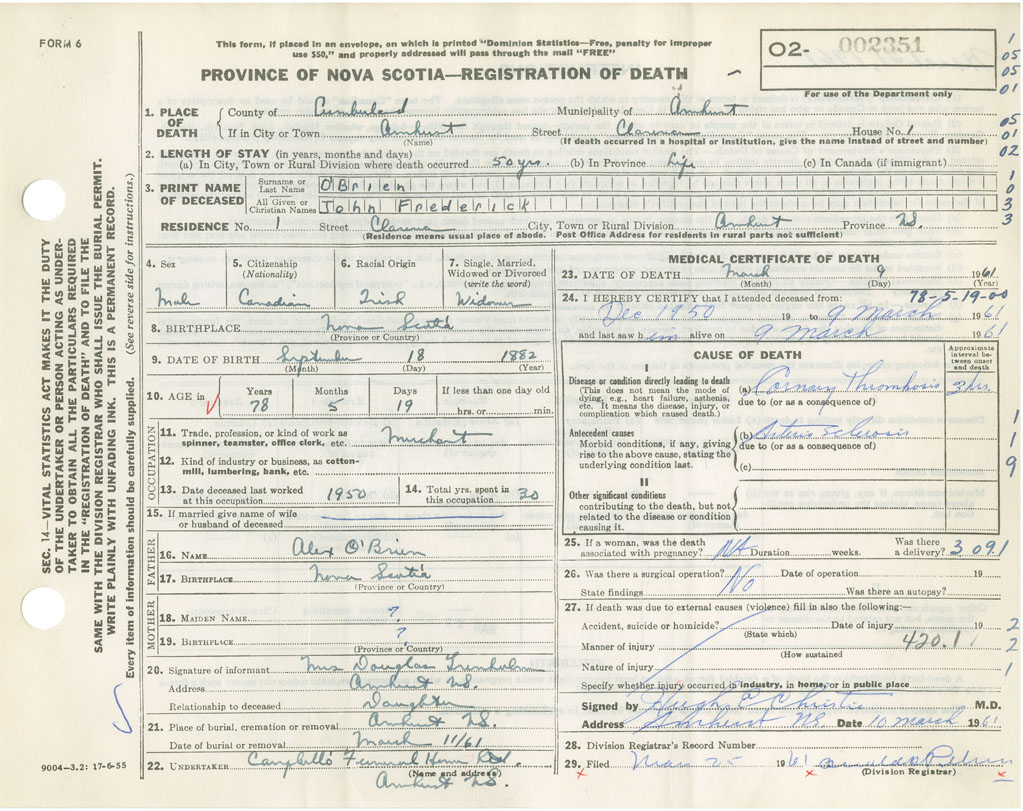 FORM 6
This form, if placed in an envelope, on which is printed "Dominion Statistics—Free, penalty for improper
use $50," and properly addressed will pass through the mail "FREE"
PROVINCE OF NOVA SCOTIA—REGISTRATION OF DEATH
O2- 002351
For use of the Department only
1
05
05
01
05
01
02
1
0
3
3
1. PLACE OF DEATH
County of Cumberland Municipality of Amherst
If in City or Town Amherst Street Clarence House No. 1
(Name) (If death occurred in a hospital or institution, give the name instead of street and number)
2. LENGTH OF STAY (in years, months and days)
(a) In City, Town or Rural Division where death occurred 50 yrs. (b) In Province Life (c) In Canada (if immigrant)
3. PRINT NAME OF DECEASED
Surname or Last Name OBrien
All Given or Christian Names John Frederick
RESIDENCE No. 1 Street Clarence City, Town or Rural Division Amherst Province N.S.
(Residence means usual place of abode. Post Office Address for residents in rural parts not sufficient)
SEC. 14—VITAL STATISTICS ACT MAKES IT THE DUTY
OF THE UNDERTAKER OR PERSON ACTING AS UNDER-
TAKER TO OBTAIN ALL THE PARTICULARS REQUIRED
IN THE "REGISTRATION OF DEATH" AND TO FILE THE
SAME WITH THE DIVISION REGISTRAR WHO SHALL ISSUE THE BURIAL PERMIT.
WRITE PLAINLY WITH UNFADING INK. THIS IS A PERMANENT RECORD.
Every item of information should be carefully supplied. (See reverse side for instructions.)
4. Sex
Male
5. Citizenship
(Nationality)
Canadian
6. Racial Origin
Irish
7. Single, Married,
Widowed or Divorced
(write the word)
Widower
8. BIRTHPLACE Nova Scotia
(Province or Country)
9. DATE OF BIRTH September 18 1882
(Month) (Day) (Year)
10. AGE in
Years Months Days If less than one day old
78 5 19 hrs. or min.
OCCUPATION
11. Trade, profession, or kind of work as
spinner, teamster, office clerk, etc. Merchant
12. Kind of industry or business, as cotton-
mill, lumbering, bank, etc.
13. Date deceased last worked
at this occupation 1950
14. Total yrs. spent in
this occupation 30
15. If married give name of wife
or husband of deceased
FATHER
16. NAME Alex O'Brien
17. BIRTHPLACE Nova Scotia
(Province or Country)
MOTHER
18. MAIDEN NAME ?
19. BIRTHPLACE ?
(Province or Country)
20. Signature of informant Mrs Douglas Trenholm
Address Amherst N.S.
Relationship to deceased Daughter
21. Place of burial, cremation or removal Amherst N.S.
Date of burial or removal March 11/61
22. UNDERTAKER Campbell's Funeral Home
(Name and address)
Amherst N.S.
9004—3.2: 17-6-55
MEDICAL CERTIFICATE OF DEATH
23. DATE OF DEATH March 9 1961
(Month) (Day) (Year)
24. I HEREBY CERTIFY that I attended deceased from: 78-5-19-00
Dec 1950 19 to 9 March 1961
and last saw him alive on 9 March 1961
CAUSE OF DEATH
Approximate
interval be-
tween onset
and death
I
Disease or condition directly leading to death
(This does not mean the mode of
dying, e.g., heart failure, asthenia,
etc. It means the disease, injury, or
complication which caused death.)
(a) Coronary Thrombosis 3 hrs.
due to (or as a consequence of)
Antecedent causes
Morbid conditions, if any, giving
rise to the above cause, stating the
underlying condition last.
(b) Arterio Sclerosis
due to (or as a consequence of)
(c)
1
1
9
II
Other significant conditions
contributing to the death, but not
related to the disease or condition
causing it.
25. If a woman, was the death
associated with pregnancy? NA Duration weeks.
Was there
a delivery? 3 091
26. Was there a surgical operation? No Date of operation 19
State findings Was there an autopsy?
27. If death was due to external causes (violence) fill in also the following:—
Accident, suicide or homicide? Date of injury 19 2
(State which)
Manner of injury 420.1 2
(How sustained
Nature of injury 1
Specify whether injury occurred in industry, in home, or in public place
Signed by Hugh Christie M.D.
Address Amherst NS Date 10 March 1961
28. Division Registrar's Record Number
29. Filed Mar 25 1961
(Division Registrar)